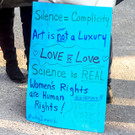 Silence = Complicity
Art is not a Luxury
LOVE is LOVE
Science is REAL
Women's Rights
are Human
Rights!